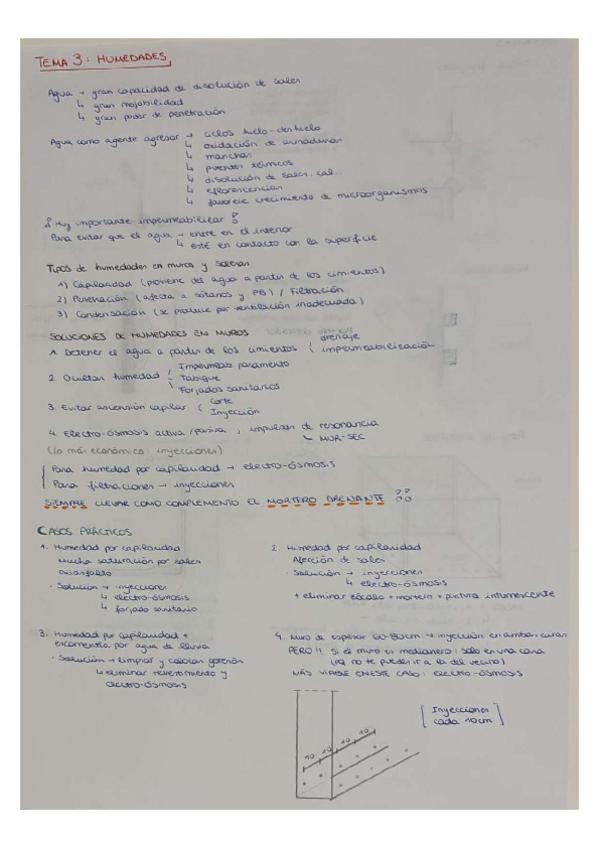 TEMA 3: HUMEDADES
Agua → gran capacidad de disolución de sales
↳ gran mojabilidad
↳ gran poder de penetración
Agua como agente agresor → ciclos hielo-deshielo
↳ oxidación de armaduras
↳ manchas
↳ puentes térmicos
↳ disolución de sales, cal...
↳ eflorescencias
↳ favorece crecimiento de microorganismos
¡¡ Muy importante impermeabilizar !!
Para evitar que el agua → entre en el interior
↳ esté en contacto con la superficie
Tipos de humedades en muros y soleras
1) Capilaridad (proviene del agua a partir de los cimientos)
2) Penetración (afecta a sótanos y PB) / Filtración
3) Condensación (se produce por ventilación inadecuada)
SOLUCIONES DE HUMEDADES EN MUROS
1. Detener el agua a partir de los cimientos { drenaje
impermeabilización
2. Ocultar humedad { Impermeab. paramento
Tabique
Forjados sanitarios
3. Evitar ascensión capilar { Corte
Inyección
4. Electro-ósmosis activa/pasiva ; impulsos de resonancia
↳ MUR-SEC
(lo más económico: inyecciones)
Para humedad por capilaridad → electro-ósmosis
Para filtraciones → inyecciones
SIEMPRE LLEVAR COMO COMPLEMENTO EL MORTERO DRENANTE !!
CASOS PRÁCTICOS
1. Humedad por capilaridad
Mucha saturación por sales
· Solución → inyecciones
↳ electro-ósmosis
↳ forjado sanitario
2. Humedad por capilaridad
Afección de sales
· Solución → inyecciones
↳ electro-ósmosis
+ eliminar zócalo + mortero + pintura intumescente
3. Humedad por capilaridad +
escorrentía por agua de lluvia
· Solución → limpiar y colocar goterón
↳ eliminar revestimiento y
electro-ósmosis
4. Muro de espesor 60-80cm → inyección en ambas caras
PERO !! Si el muro es medianero: solo en una cara
(no te puedes ir a la del vecino)
MÁS VIABLE EN ESTE CASO: ELECTRO-ÓSMOSIS
[Inyecciones
cada 10cm]
10 10 10 10